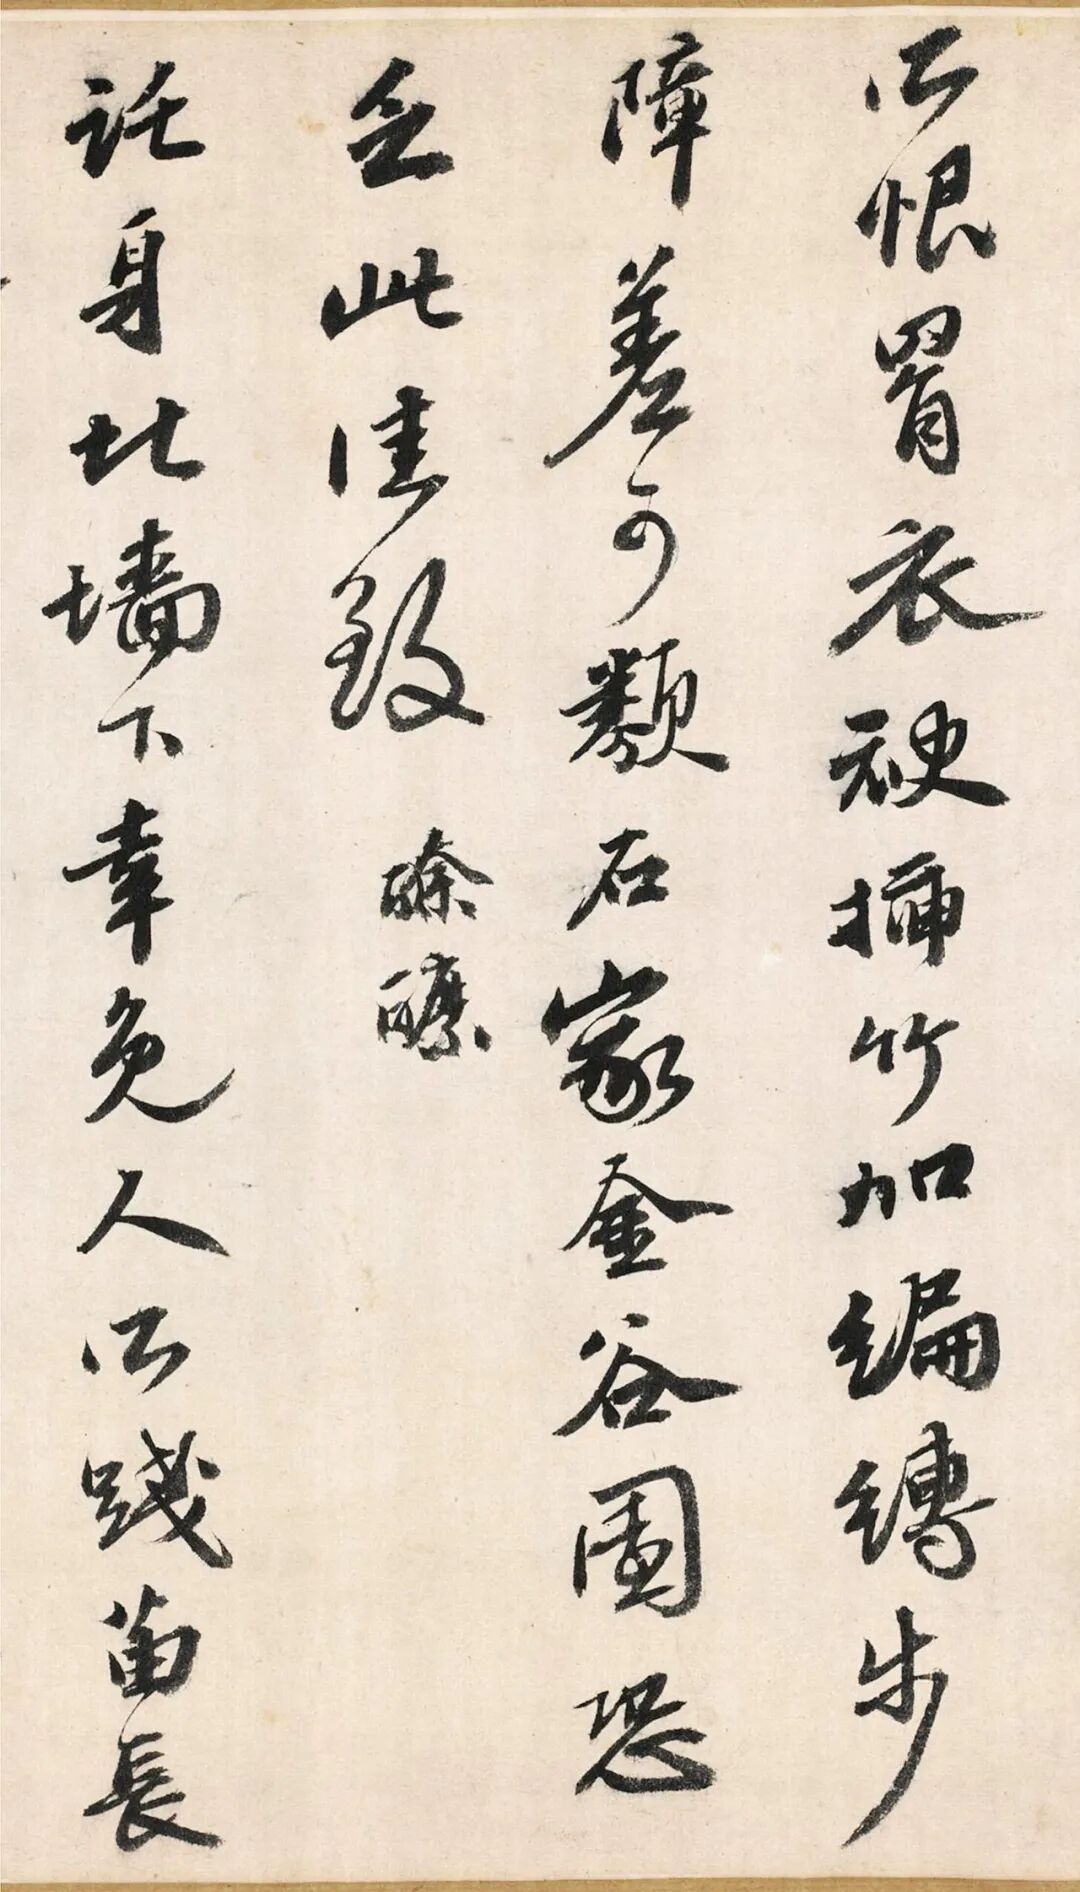 所恨罥衣袂插竹加編縛步
障差可類石家金谷園恐
乏此佳致 酴醾
託身北墻下幸免人所踐苗長